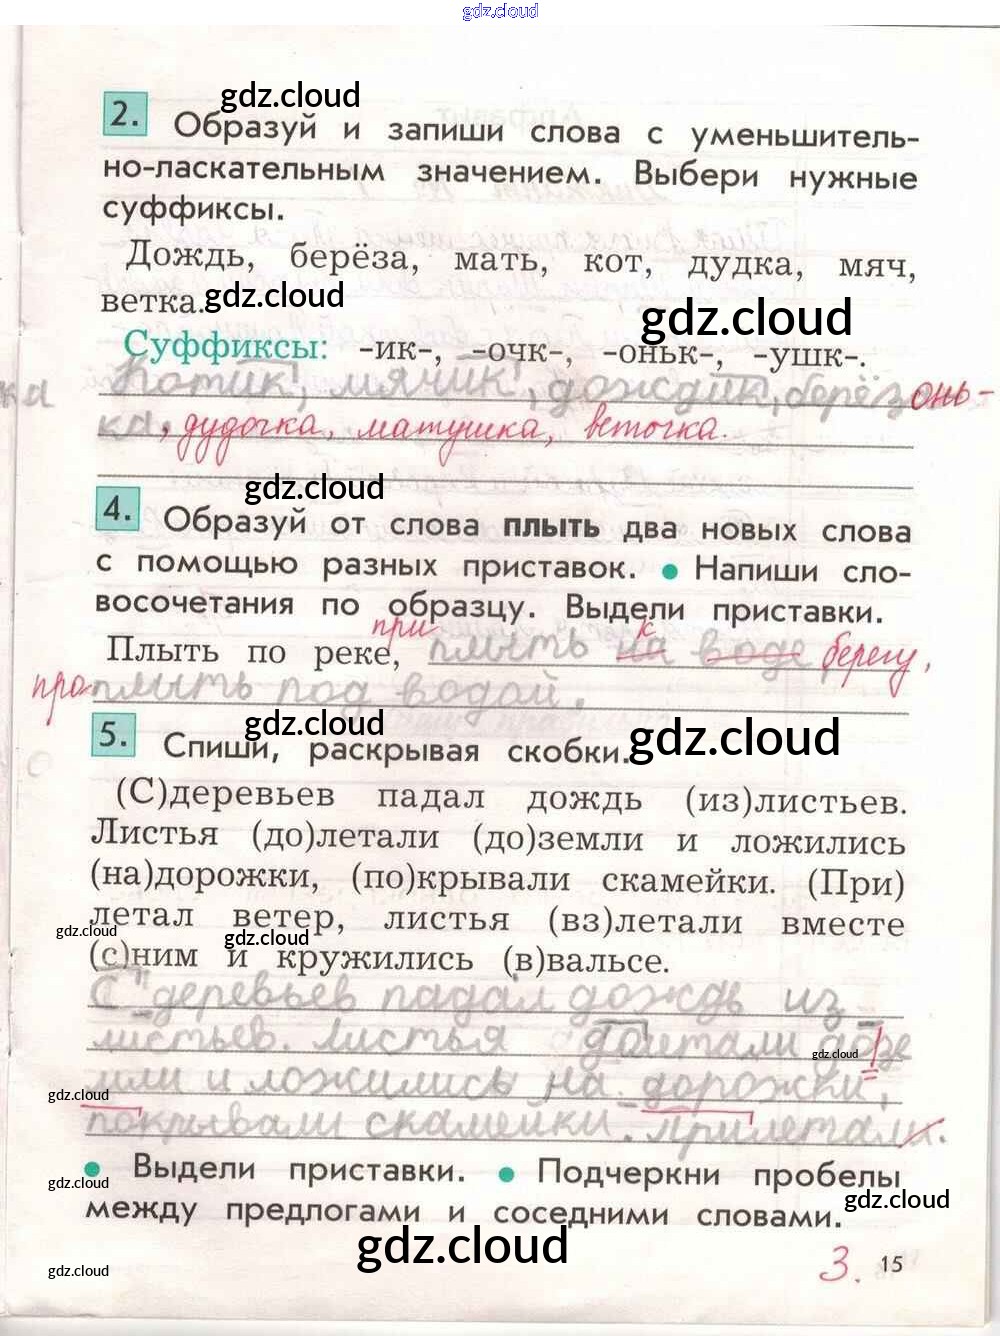 gdz.cloud
gdz.cloud
2. Образуй и запиши слова с уменьшитель-
но-ласкательным значением. Выбери нужные
суффиксы.
Дождь, берёза, мать, кот, дудка, мяч,
ветка.
gdz.cloud
gdz.cloud
Суффиксы: -ик-, -очк-, -оньк-, -ушк-.
Котик, мячик, дождик, берёзонь-
ка, дудочка, матушка, веточка.
gdz.cloud
4. Образуй от слова плыть два новых слова
с помощью разных приставок. • Напиши сло-
восочетания по образцу. Выдели приставки.
при к
Плыть по реке, плыть на воде берегу,
проплыть под водой.
gdz.cloud
gdz.cloud
5. Спиши, раскрывая скобки.
(С)деревьев падал дождь (из)листьев.
Листья (до)летали (до)земли и ложились
(на)дорожки, (по)крывали скамейки. (При)
летал ветер, листья (вз)летали вместе
gdz.cloud
gdz.cloud
(с)ним и кружились (в)вальсе.
С деревьев падал дождь из
листьев. Листья долетали дозе
gdz.cloud
мли и ложились на дорожки,
gdz.cloud
покрывали скамейки. Прилетали.
• Выдели приставки. • Подчеркни пробелы
gdz.cloud
gdz.cloud
между предлогами и соседними словами.
gdz.cloud
3. 15
gdz.cloud